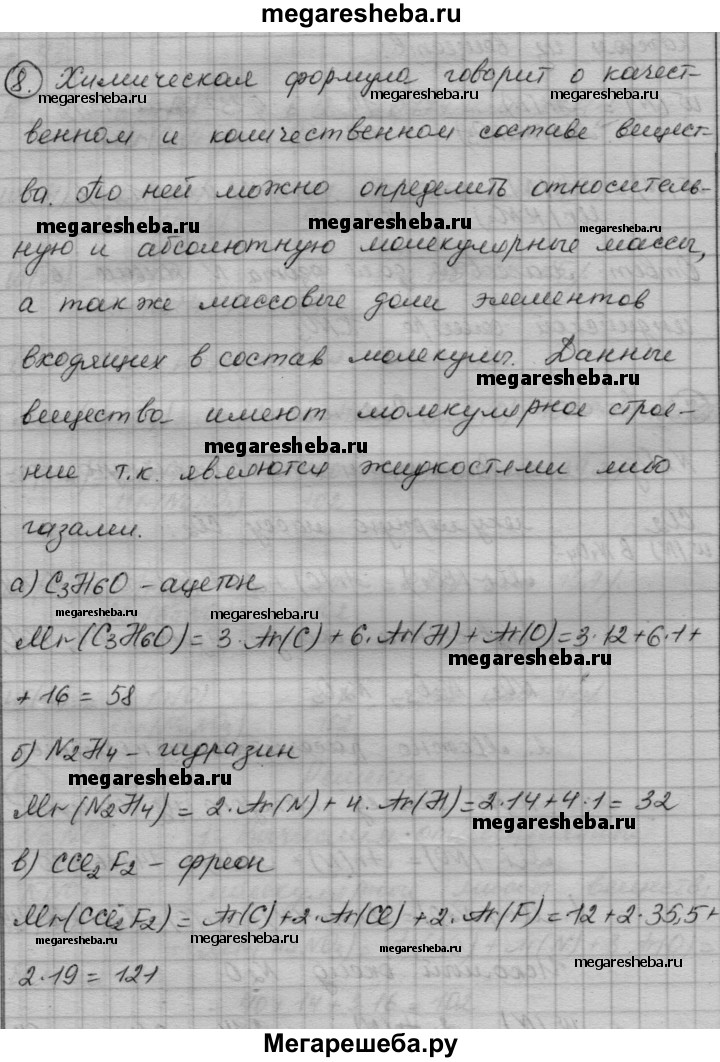 megaresheba.ru
8. Химическая формула говорит о качест-
megaresheba.ru megaresheba.ru megaresheba.ru
венном и количественном составе вещест-
ва. По ней можно определить относитель-
megaresheba.ru megaresheba.ru megaresheba.ru
ную и абсолютную молекулярные массы,
а также массовые доли элементов
входящих в состав молекулы. Данные
megaresheba.ru
вещества имеют молекулярное строе-
megaresheba.ru megaresheba.ru
ние т.к. являются жидкостями либо
газами.
а) C3H6O - ацетон
megaresheba.ru megaresheba.ru
Mr(C3H6O) = 3·Ar(C) + 6·Ar(H) + Ar(O) = 3·12 + 6·1 +
megaresheba.ru
+ 16 = 58
б) N2H4 - гидразин
megaresheba.ru
Mr(N2H4) = 2·Ar(N) + 4·Ar(H) = 2·14 + 4·1 = 32
megaresheba.ru
в) CCl2F2 - фреон
Mr(CCl2F2) = Ar(C) + 2·Ar(Cl) + 2·Ar(F) = 12 + 2·35,5 +
megaresheba.ru megaresheba.ru megaresheba.ru
2·19 = 121
megaresheba.ru
Мегарешеба.ру